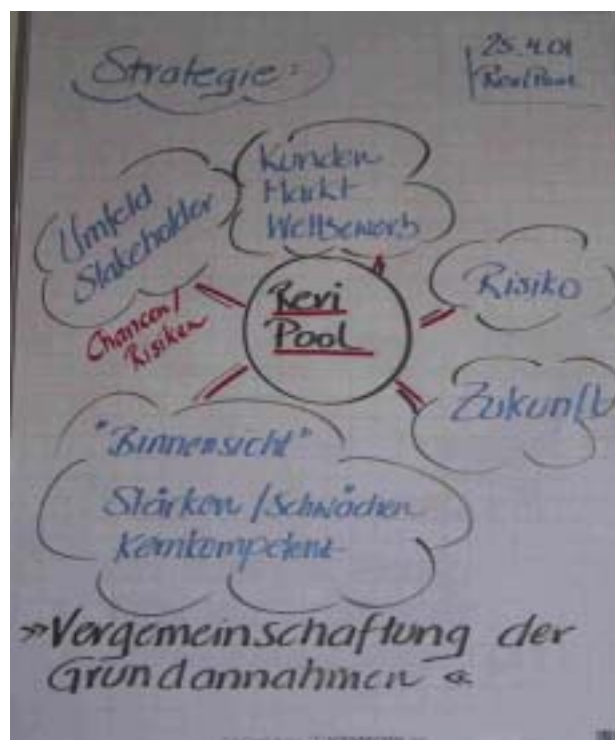 Strategie:
25.4.01
ReviPool
Kunden
Markt
Wettbewerb
Umfeld
Stakeholder
Chancen/
Risiken
Revi
Pool
Risiko
Zukunft
"Binnensicht"
Stärken / Schwächen
Kernkompetent
»Vergemeinschaftung der
Grundannahmen «